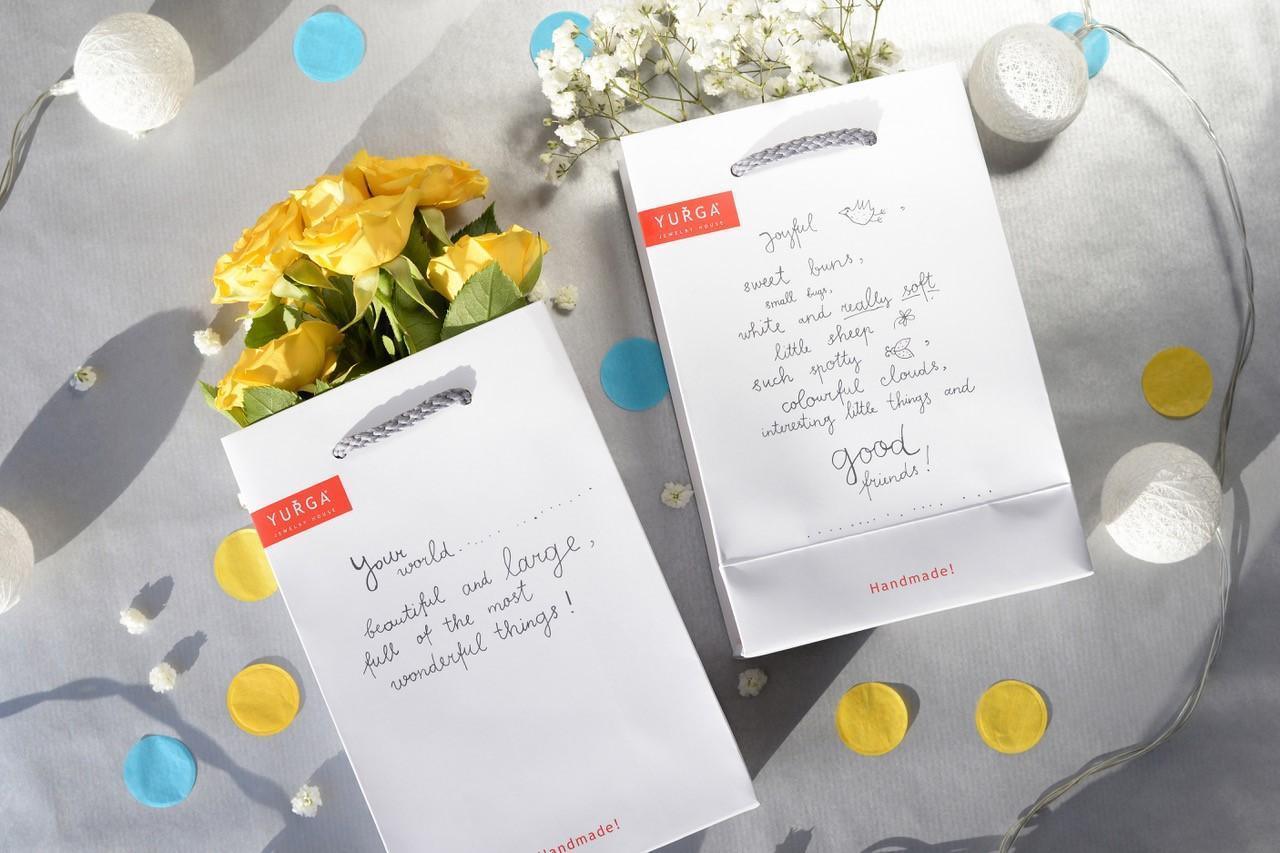 YURGA
JEWELRY HOUSE
Your world........
beautiful and large,
full of the most
wonderful things!
Handmade!
YURGA
JEWELRY HOUSE
Joyful ,
sweet buns,
small bugs,
white and really soft
little sheep
such spotty ,
colourful clouds,
interesting little things and
good
friends!
Handmade!